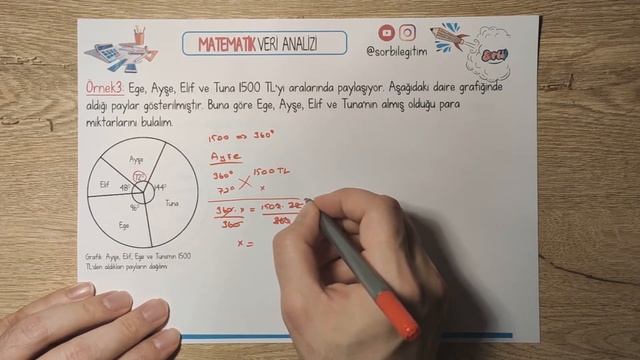 MATEMATİK VERİ ANALİZİ
@sorbilegitim
Örnek3: Ege, Ayşe, Elif ve Tuna 1500 TL'yi aralarında paylaşıyor. Aşağıdaki daire grafiğinde
aldığı paylar gösterilmiştir. Buna göre Ege, Ayşe, Elif ve Tuna'nın almış olduğu para
miktarlarını bulalım.
1500 => 360°
Ayşe
360° 1500 TL
72° x
360 · x = 1500 · 72
360 360
x =
Ayşe
72°
Elif 48° 144°
Tuna
96°
Ege
Grafik: Ayşe, Elif, Ege ve Tuna'nın 1500
TL'den aldıkları payların dağılımı